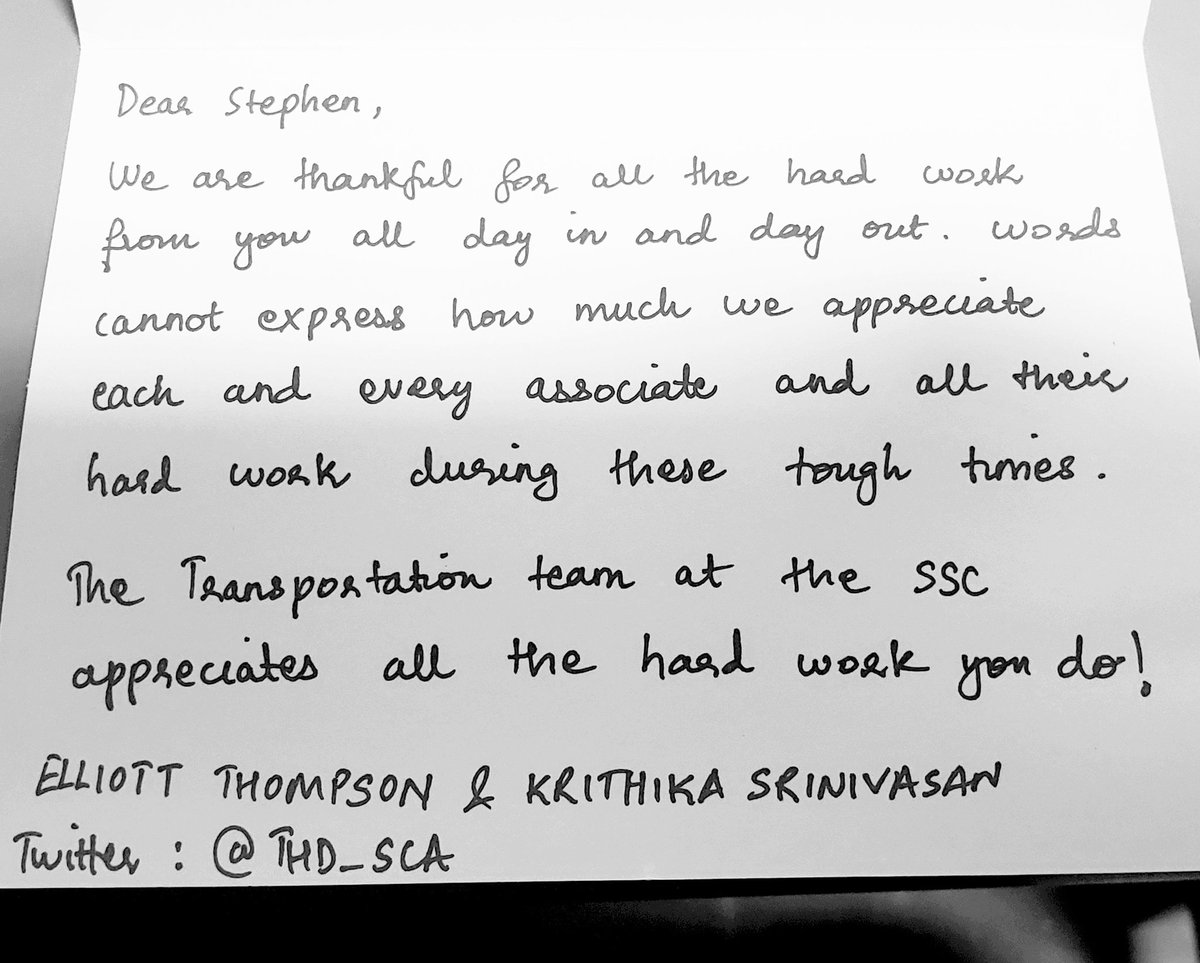 Dear Stephen,
We are thankful for all the hard work
from you all day in and day out. Words
cannot express how much we appreciate
each and every associate and all their
hard work during these tough times.
The Transportation team at the SSC
appreciates all the hard work you do!
ELLIOTT THOMPSON & KRITHIKA SRINIVASAN
Twitter : @THD_SCA